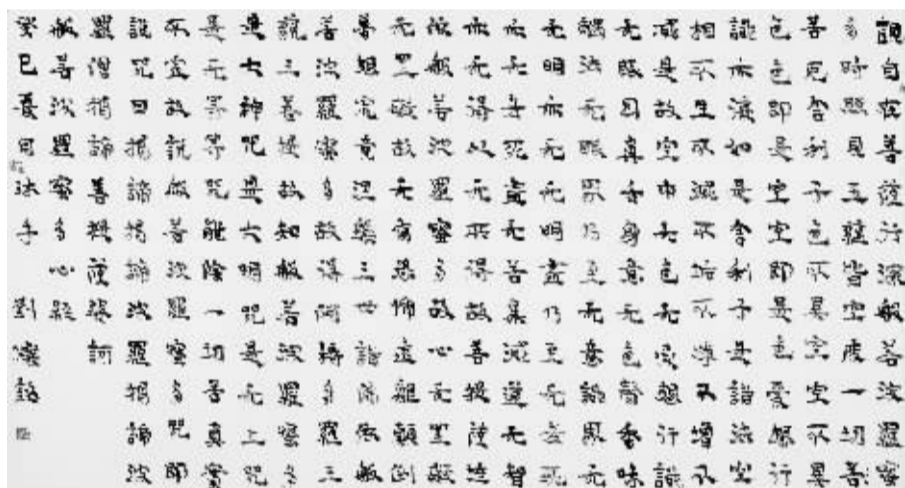 觀自在菩薩行深般若波羅蜜
多時照見五蘊皆空度一切苦
苦厄舍利子色不異空空不異
色色即是空空即是色受想行
識亦復如是舍利子是諸法空
相不生不滅不垢不淨不增不
減是故空中无色无受想行識
无眼耳鼻舌身意无色聲香味
觸法无眼界乃至无意識界无
无明亦无无明盡乃至无老死
亦无老死盡无苦集滅道无智
亦无得以无所得故菩提薩埵
依般若波羅蜜多故心无罣礙
无罣礙故无有恐怖遠離顛倒
夢想究竟涅槃三世諸佛依般
若波羅蜜多故得阿耨多羅三
藐三菩提故知般若波羅蜜多
是大神咒是大明咒是无上咒
是无等等咒能除一切苦真實
不虛故說般若波羅蜜多咒即
說咒曰揭諦揭諦波羅揭諦波
羅僧揭諦菩提薩婆訶
般若波羅蜜多心經
癸巳夏